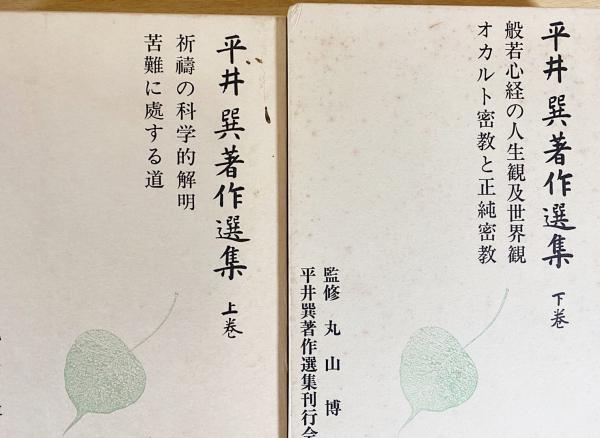 平井巽著作選集 上巻
祈禱の科学的解明
苦難に處する道
平井巽著作選集 下巻
般若心経の人生観及世界観
オカルト密教と正純密教
監修 丸山博
平井巽著作選集刊行会